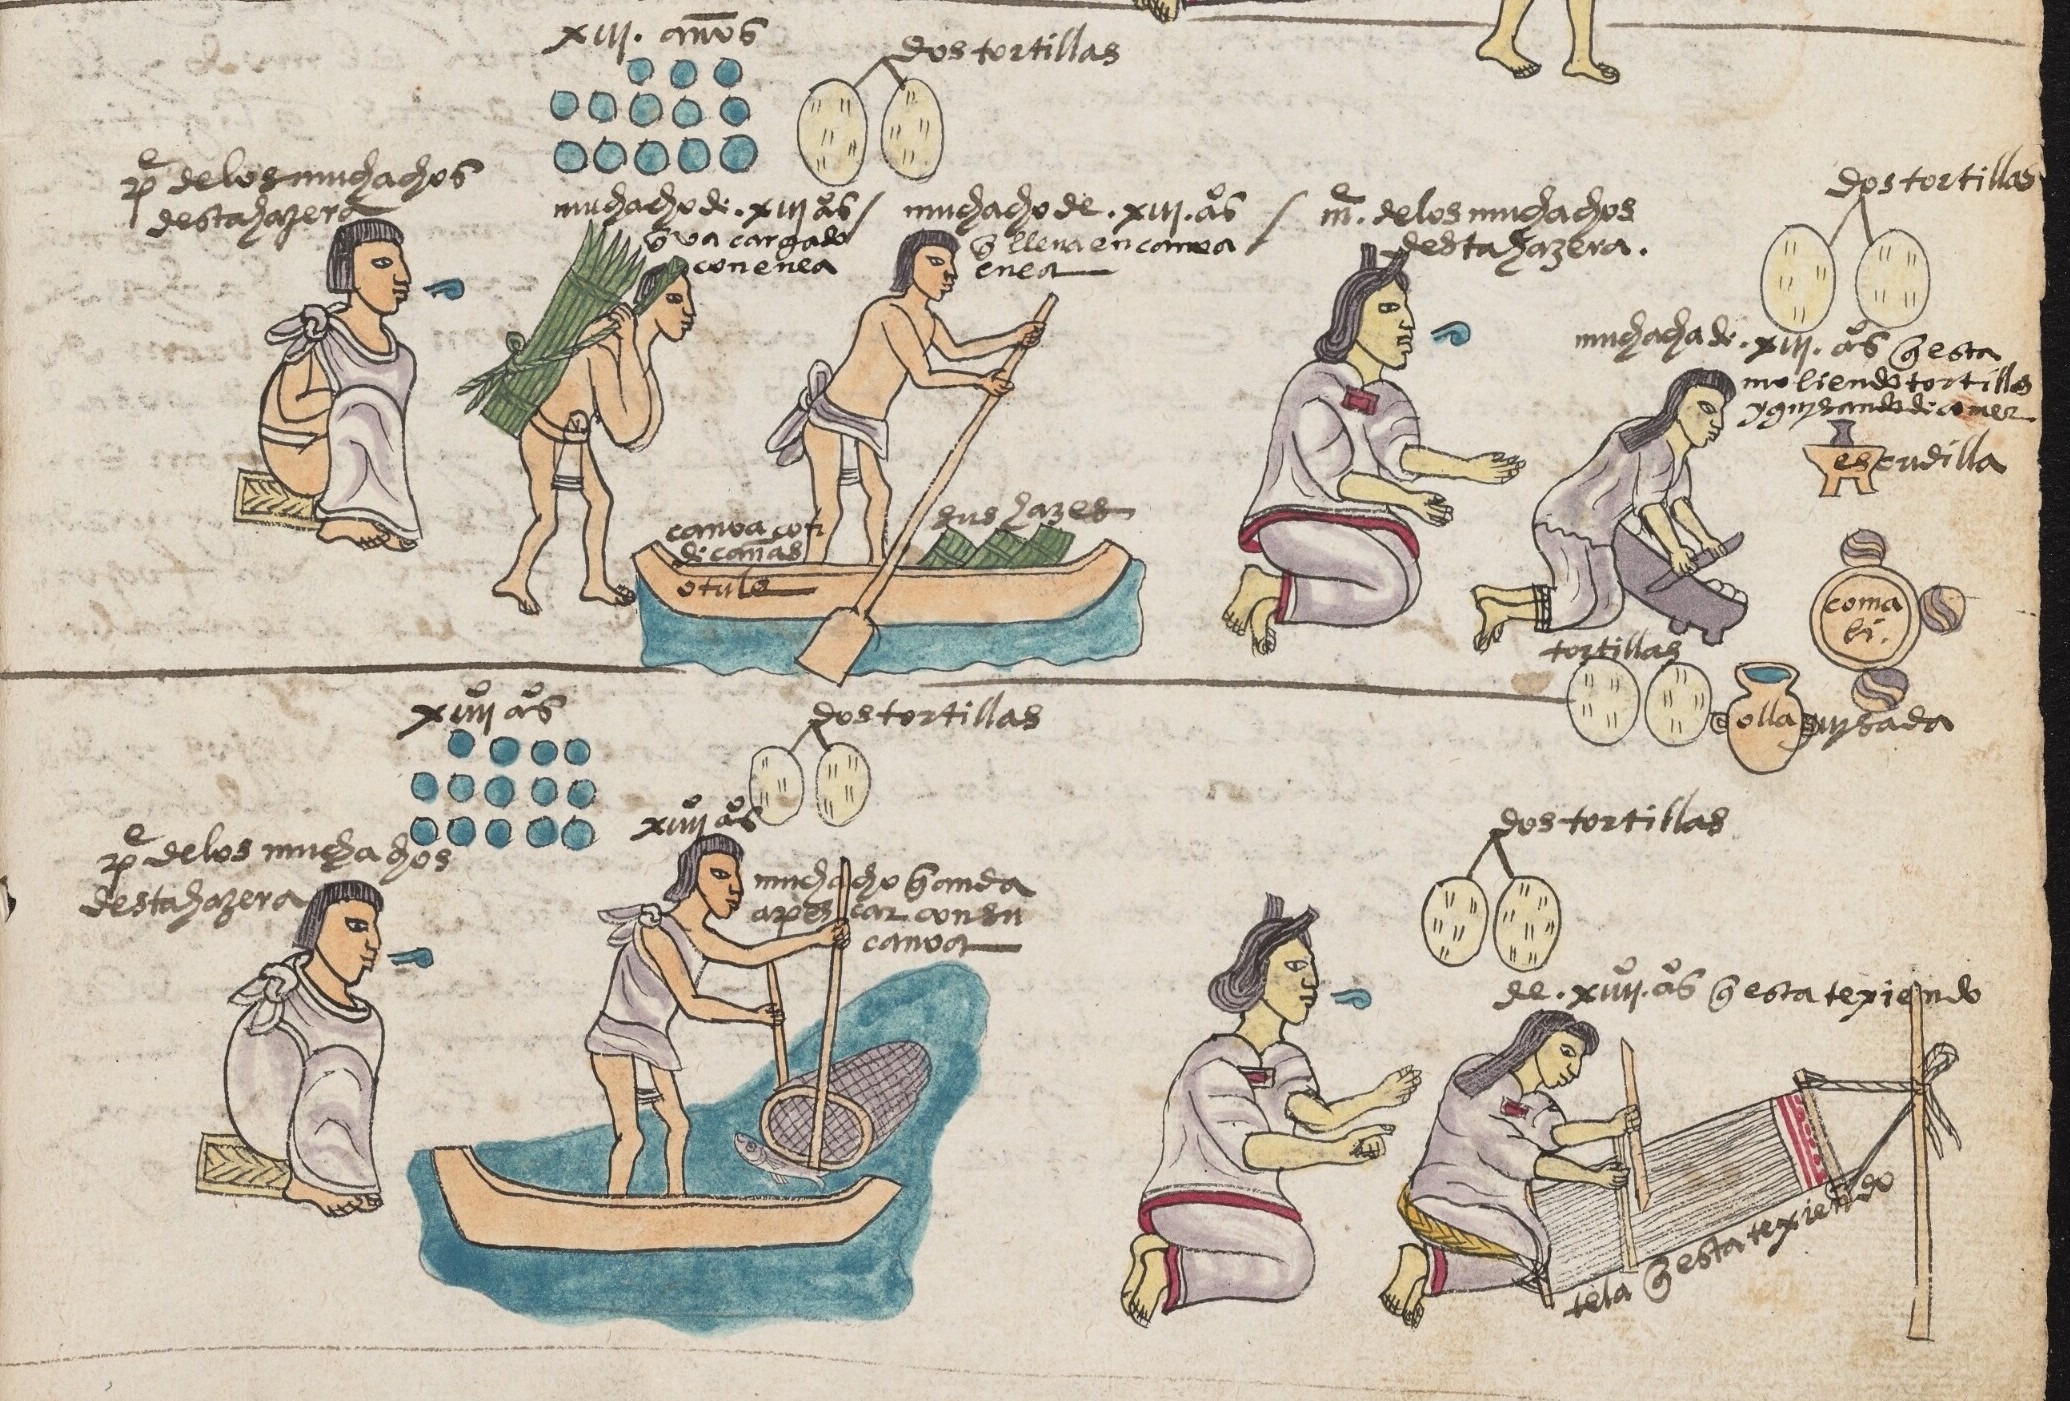 xiii. años
dos tortillas
pe de los muchachos
desta hazera
muchacho de. xiii aos /
q̃ va cargado
con enea
muchacho de. xiii. aos /
q̃ lleva en canoa
enea
me. de los muchachos
desta hazera.
dos tortillas
muchacha de. xiii. aos q̃ esta
moliendo tortillas
y guisando de comer
escudilla
canoa con
di cañas
o tule
sus hazes
comali.
tortillas
olla guisada
xiiii aos
dos tortillas
xiiii aos
pe de los muchachos
desta hazera
muchacho q̃ anda
a pescar con su
canoa
dos tortillas
de. xiiii. aos q̃ esta texiendo
tela q̃ esta texiendo